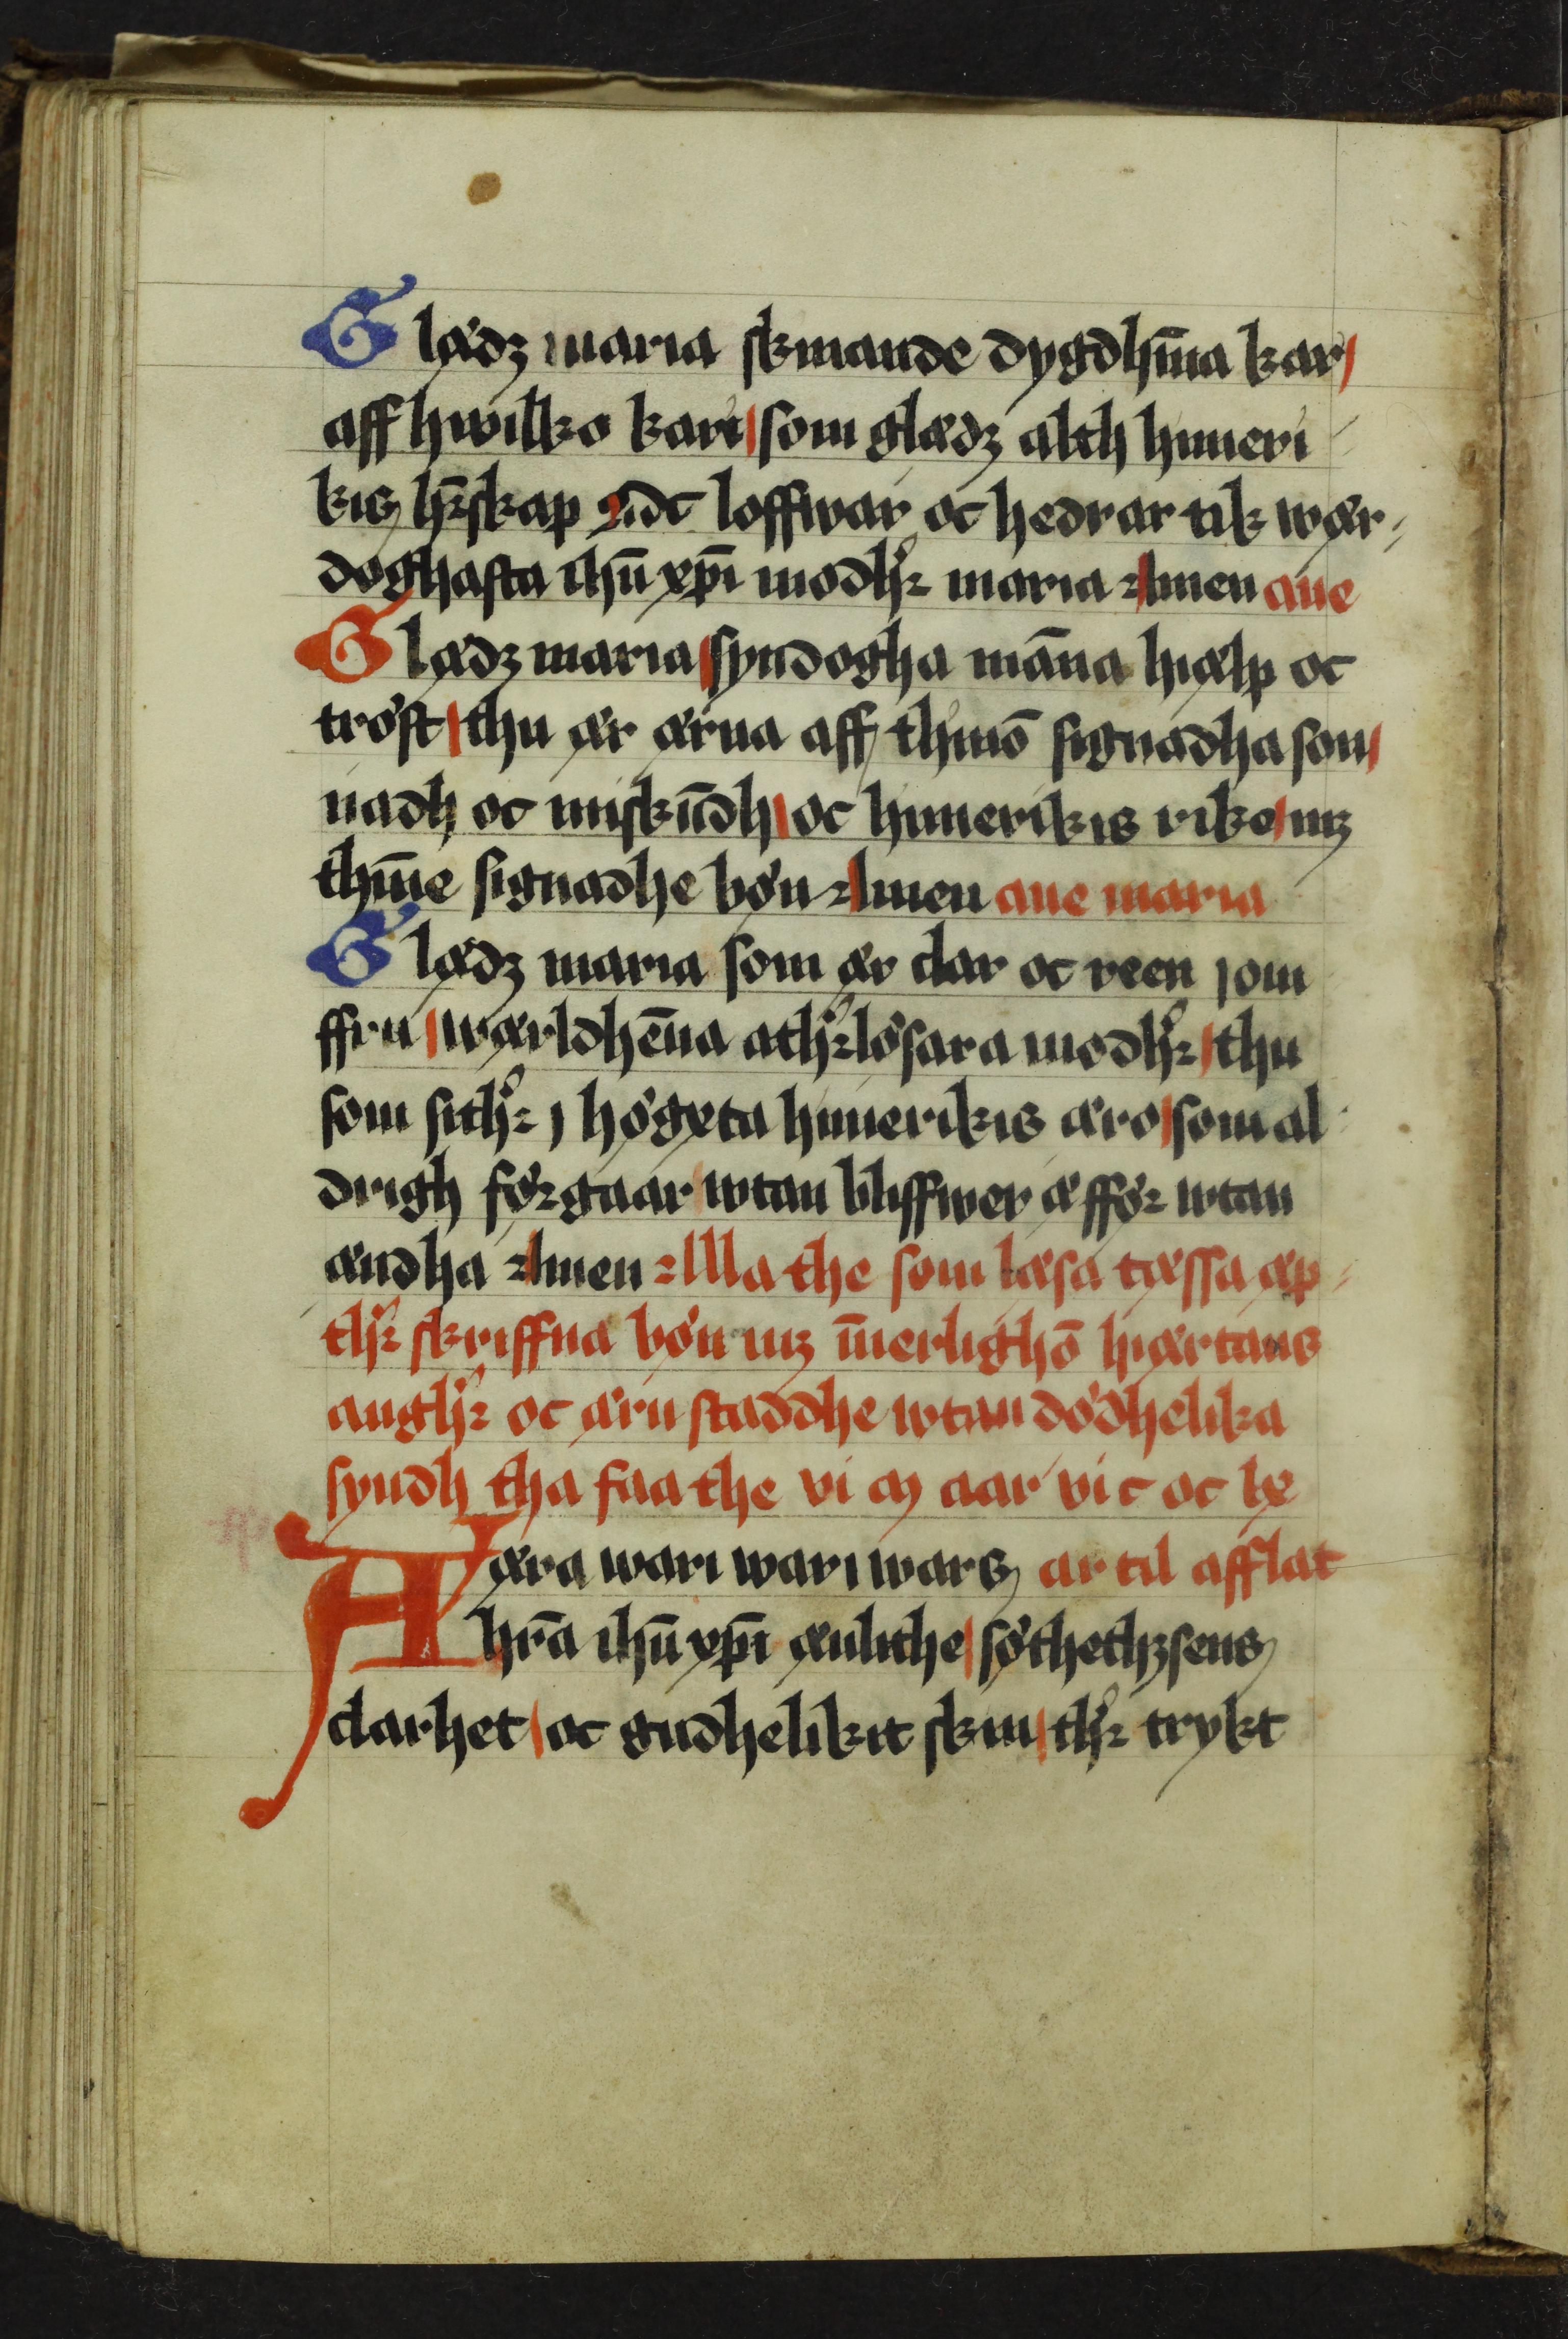 Glædz maria skinande dygdhīna kar
aff hwilko kari som glædz alth himeri
kis hr̄skap oc loffwar oc hedrar tik wær
doghasta ihū xp̄i modhꝛ maria Amen aue
Glædz maria syndogha māna hiælp oc
trøst thu ær ærna aff thinō signadha son
nadh oc miskūdh oc himerikis rike mz
thīne signadhe bøn Amen aue maria
Glædz maria som ær clar oc reen jom
ffru wærldhēna athꝛløsara modhꝛ thu
som sithꝛ j høgxta himerikis æro som al
drigh føꝛgaar wtan bliffwer æ fføꝛ wtan
ændha Amen Alla the som læsa tæssa æp
thꝛ skriffna bøn mz īnerlighō hiærtans
anghꝛ oc æru staddhe wtan dødhelika
syndh tha faa the vi m aar vi c oc lx
Aæra wari wari wars ar til afflat
hrā ihū xp̄i ænlithe søthethzsens
clarhet oc gudhelikit skin thꝛ trykt